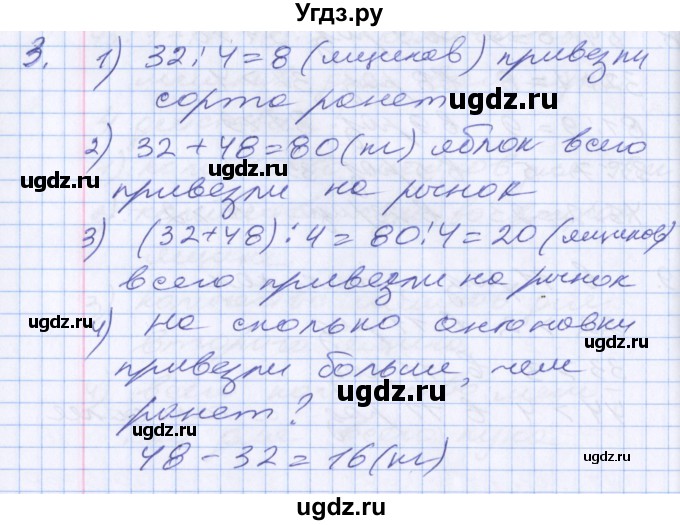 Угдз.ру
3. 1) 32:4=8 (ящиков) привезли
сорта ранет ugdz.ru
2) 32+48=80(кг) яблок всего
ugdz.ru ugdz.ru
привезли на рынок
3) (32+48):4=80:4=20 (ящиков)
всего привезли на рынок
ugdz.ru ugdz.ru
4) на сколько антоновки
привезли больше, чем
ugdz.ru
ранет?
ugdz.ru
48-32=16(кг)
ugdz.ru
ugdz.ru